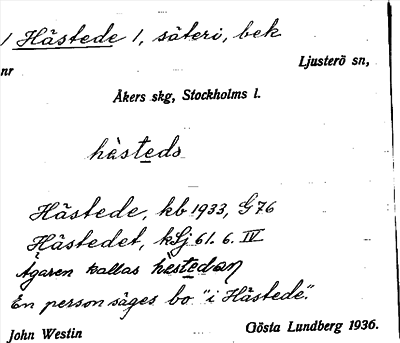 1 Hästede 1, säteri, bek
Ljusterö sn,
nr
Åkers skg, Stockholms l.
hàsteds
Hästede, kb 1933, G76
Hästedet, kLj 61. 6. IV
Ägaren kallas hèstedan
En person säges bo "i Hästede".
John Westin
Gösta Lundberg 1936.